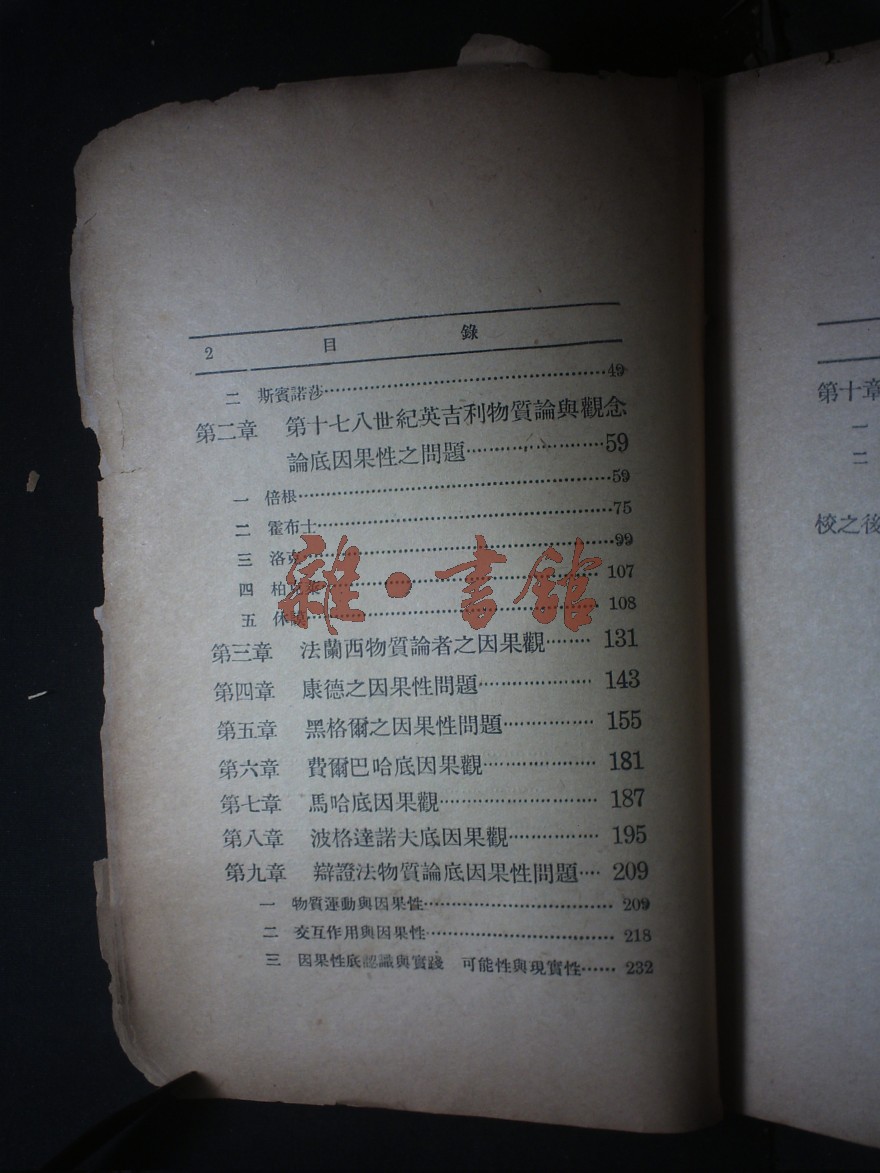 2 目 錄
二 斯賓諾莎……49
第二章 第十七八世紀英吉利物質論與觀念
論底因果性之問題……59
一 倍根……59
二 霍布士……75
三 洛克……99
四 柏克萊……107
五 休謨……108
第三章 法蘭西物質論者之因果觀……131
第四章 康德之因果性問題……143
第五章 黑格爾之因果性問題……155
第六章 費爾巴哈底因果觀……181
第七章 馬哈底因果觀……187
第八章 波格達諾夫底因果觀……195
第九章 辯證法物質論底因果性問題……209
一 物質運動與因果性……209
二 交互作用與因果性……218
三 因果性底認識與實踐 可能性與現實性……232
第十章
一
二
校之後
雜·書館